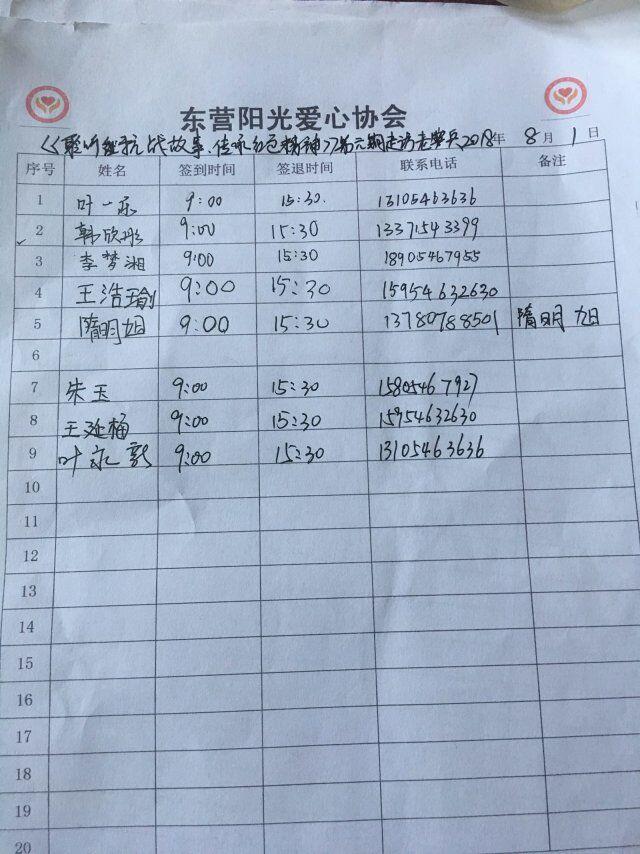 东营阳光爱心协会
《聆听红色抗战故事,传承红色精神》第六期走访老党兵2018年8月1日
序号 姓名 签到时间 签退时间 联系电话 备注
1 叶一乐 9:00 15:30. 13105463636
2 韩欣彤 9:00 15:30 13371543399
3 李梦湘 9:00 15:30 18905467955
4 王浩瑜 9:00 15:30 15954632630
5 隋明旭 9:00 15:30 13780788501 隋明旭
6
7 朱玉 9:00 15:30 15805467927
8 王延梅 9:00 15:30 15954632630
9 叶永新 9:00 15:30 13105463636
10
11
12
13
14
15
16
17
18
19
20